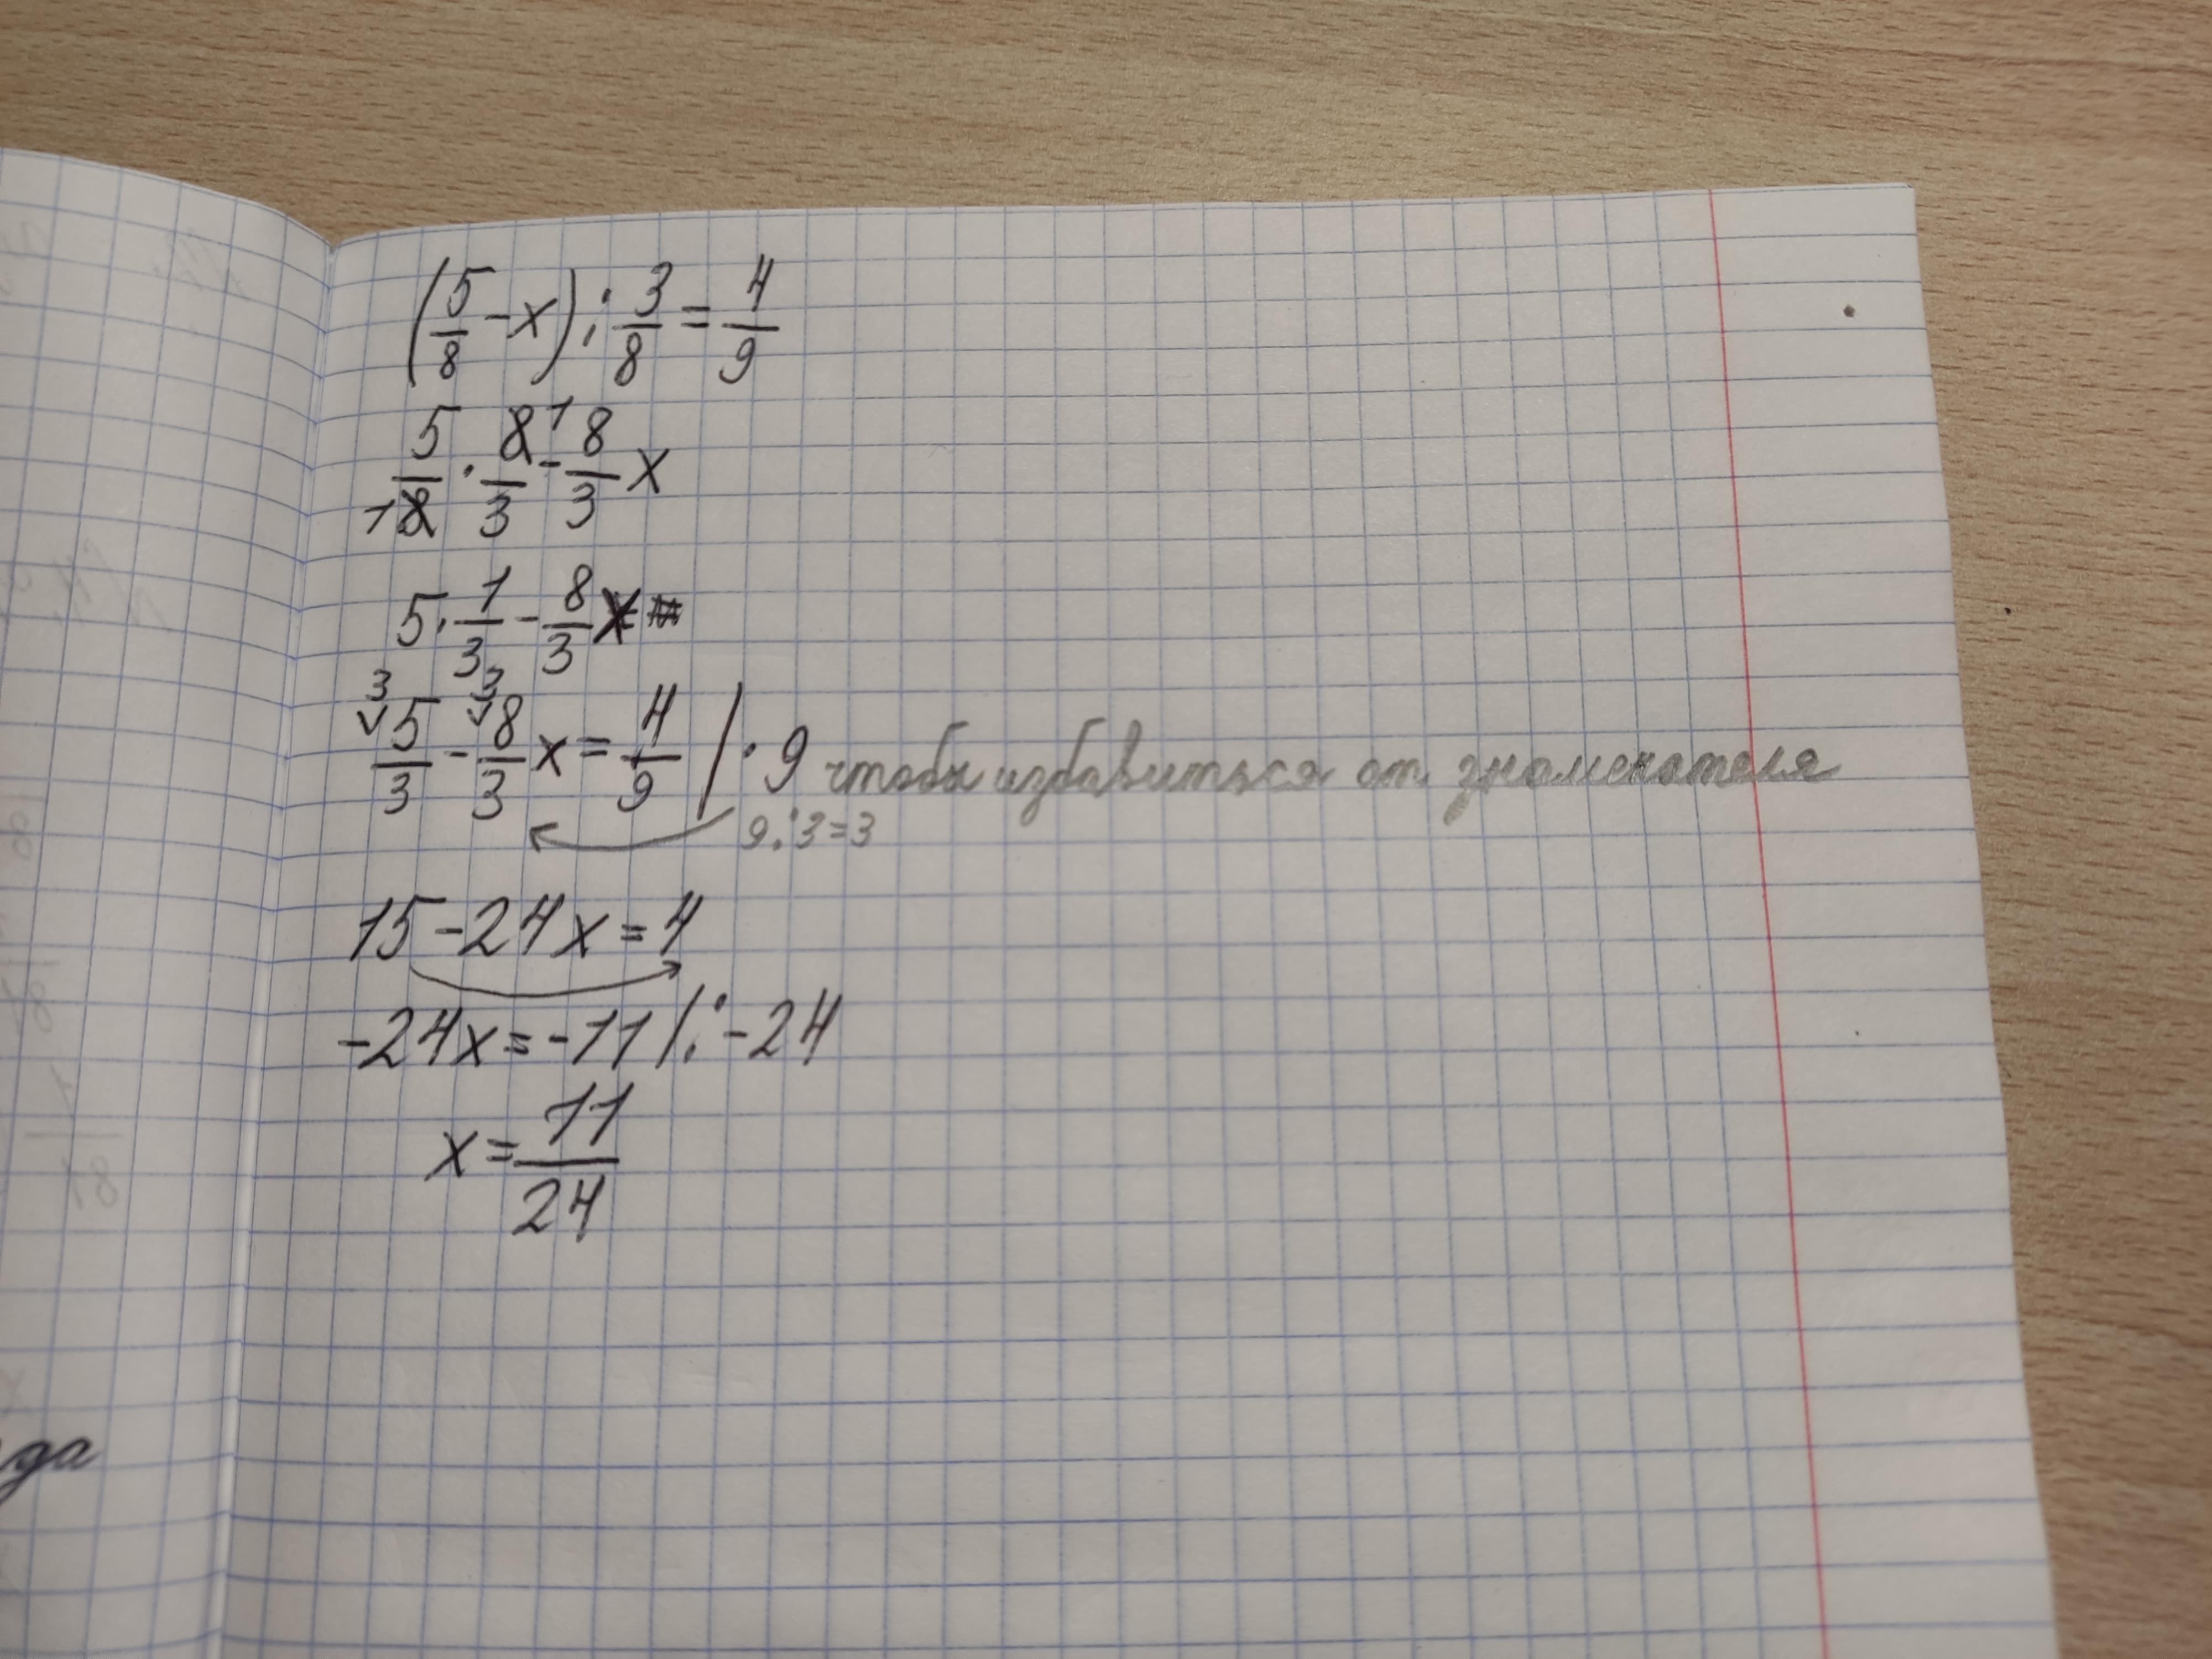 (5/8 - x) : 3/8 = 4/9
5/8 · 8/3 - 8/3 x
1 1
5 · 1/3 - 8/3 x
3 3
5/3 - 8/3 x = 4/9 | · 9 чтобы избавиться от знаменателя
9:3=3
15 - 24x = 4
-24x = -11 | : -24
x = 11/24
да